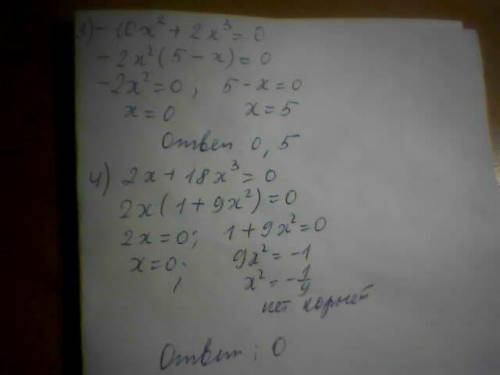 3) -10x² + 2x³ = 0
-2x²(5 - x) = 0
-2x² = 0; 5 - x = 0
x = 0 x = 5
Ответ 0, 5
4) 2x + 18x³ = 0
2x(1 + 9x²) = 0
2x = 0; 1 + 9x² = 0
x = 0; 9x² = -1
x² = -1/9
нет корней
Ответ: 0